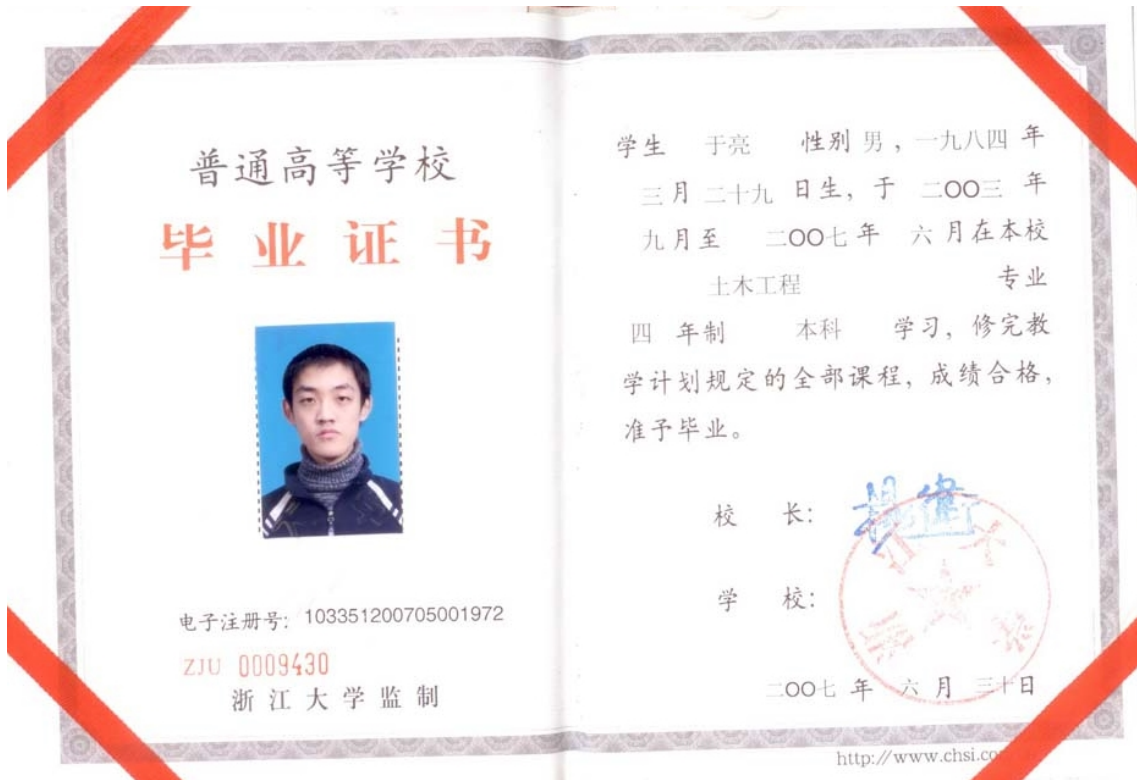 普通高等学校
毕业证书
电子注册号: 103351200705001972
ZJU 0009430
浙江大学监制
学生 于亮 性别 男，一九八四 年
三月 二十九 日生，于 二OO三 年
九月至 二OO七年 六月在本校
土木工程 专业
四 年制 本科 学习，修完教
学计划规定的全部课程，成绩合格，
准予毕业。
校 长: 杨卫
学 校:
二OO七 年 六 月 三十日
http://www.chsi.co